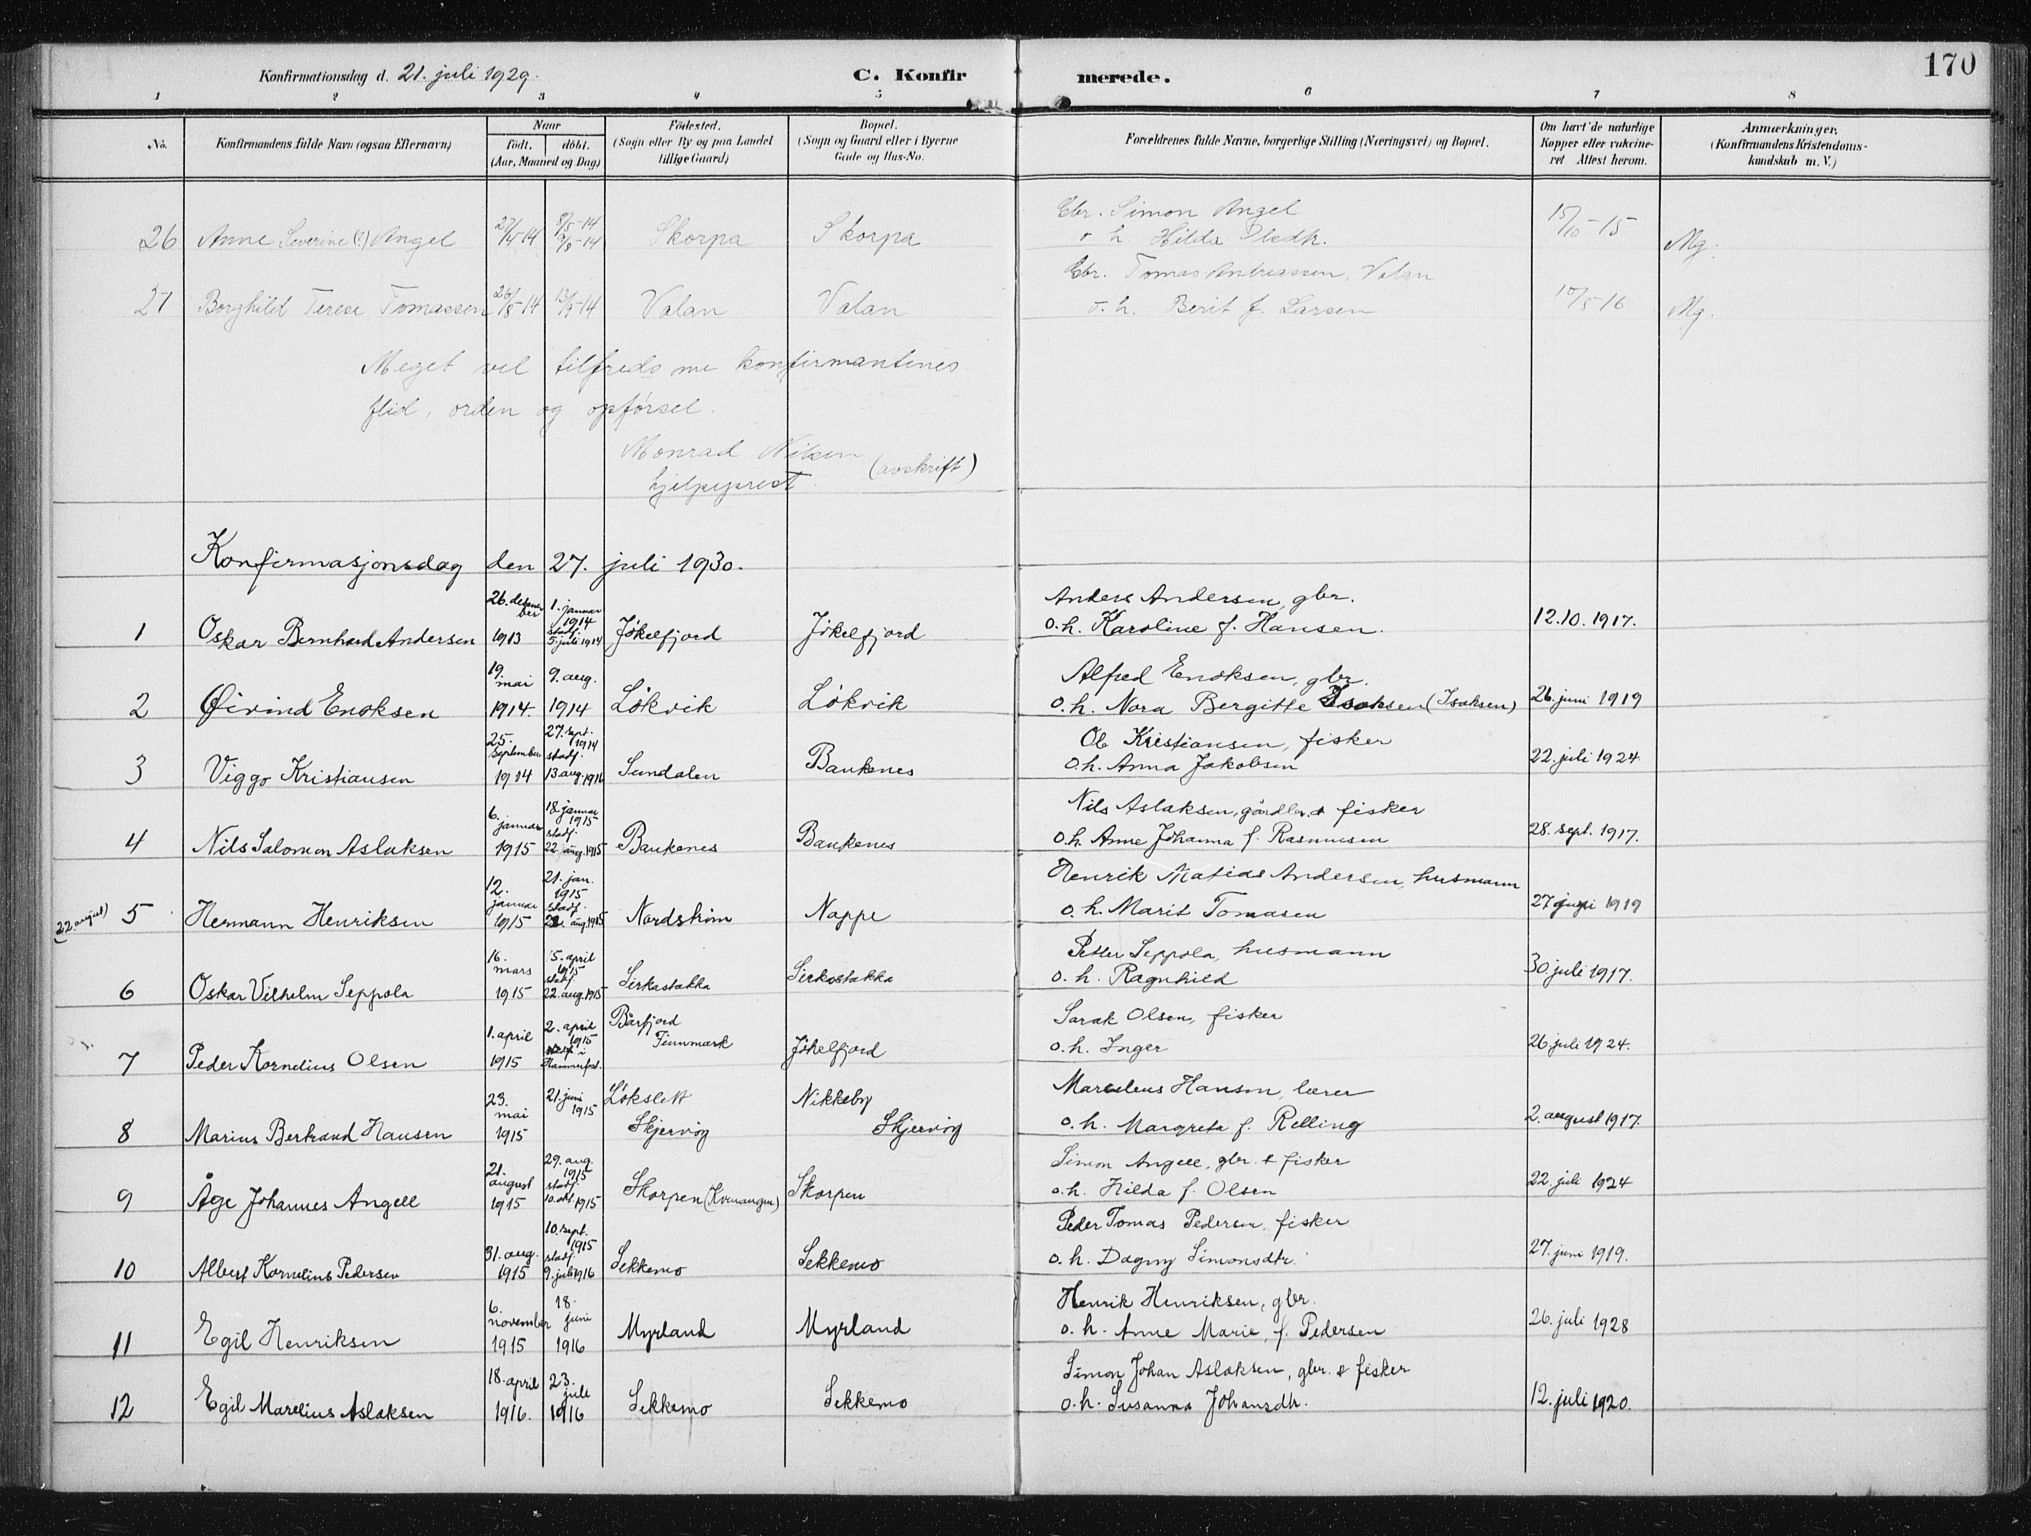 170
Konfirmationsdag d. 21. juli 1929.
C. Konfirmerede.
1 2 3 4 5 6 7 8
No.
Konfirmandens fulde Navn (ogsaa Efternavn)
Naar
födt. döbt.
(Aar, Maaned og Dag)
Födested.
(Sogn eller By og paa Landet
tillige Gaard)
Bopæl.
(Sogn og Gaard eller i Byerne
Gade og Hus-No.
Forældrenes fulde Navne, borgerlige Stilling (Næringsvei) og Bopæl.
Om havt de naturlige
Kopper eller vakcine-
ret Attest herom.
Anmærkninger.
(Konfirmandens Kristendoms-
kundskab m. V.)
26 Anne Severine (?) Angel 27/4-14 8/5-14 Skorpa Skorpa Gbr. Simon Angel 15/10-15 Mg.
o. h. Hilda
27 Borghild Terese Tomassen 26/8-14 13/9-14 Valan Valan Gbr. Tomas Andreassen, Valan 10/5-16 Mg.
o. h. Berit f. Larsen
Meget vel tilfreds me konfirmantenes
flid, orden og opførsel.
Monrad Nilsen
hjelpeprest. (avskrift)
Konfirmasjonsdag den 27. juli 1930.
1 Oskar Bernhard Andersen 26. desember 1913 1. januar 1914 stadf. 5. juli 1914 Jøkelfjord Jøkelfjord Anders Andersen, gbr. 12.10.1917.
o. h. Karoline f. Hansen.
2 Øivind Enoksen 19. mai 1914. 9. aug. 1914 Løkvik Løkvik Alfred Enoksen, gbr. 26. juni 1919
o. h. Nora Bergitte Isaksen (Isaksen)
3 Viggo Kristiansen 25. september 1914 27. sept. 1914 stadf. 13 aug. 1916 Sundalen Baukenes Ole Kristiansen, fisker 22. juli 1924
o. h. Anna Jakobsen
4 Nils Salomon Aslaksen 6. januar 1915 18. januar 1915 stadf. 22 aug. 1915 Baukenes Baukenes Nils Aslaksen, gårdbr. & fisker 28. sept. 1917.
o. h. Anne Johanna f. Rasmussen
22 august) 5 Hermann Henriksen 12. januar 1915 21. jan. 1915 stadf. 22. aug. 1915 Nordstrøm Nappe Henrik Matias Andersen, husmann 27 juni 1919
o. h. Marit Tomasen
6 Oskar Vilhelm Seppola 16. mars 1915 5. april 1915 stadf. 22. aug. 1915 Sirkastakka Sirkastakka Petter Seppola, husmann 30. juli 1917.
o. h. Ragnhild
7 Peder Kornelius Olsen 1. april 1915 2. april 1915 i Hammerfest. Bårfjord Finnmark Jøkelfjord Sarak Olsen, fisker 26 juli 1924.
o. h. Inger
8 Marius Bertrand Hansen 23. mai 1915 21. juni 1915 Løkslett Skjervøy Nikkeby Skjervøy Marselius Hansen, lærer 2. august 1917.
o. h. Margreta f. Relling
9 Åge Johannes Angell 21. august 1915 29. aug. 1915 stadf. 10. okt. 1915 Skorpen (Kvenangen) Skorpen Simon Angell, gbr. & fisker 22. juli 1924
o. h. Hilda f. Olsen
10 Albert Kornelius Pedersen 31. aug. 1915 10. sept. 1915 stadf. 9. juli 1916 Sekkemo Sekkemo Peder Tomas Pedersen, fisker 27. juni 1919.
o. h. Dagny Simonsdtr.
11 Egil Henriksen 6. november 1915 18. juni 1916 Myrland Myrland Henrik Henriksen, gbr. 26. juli 1928
o. h. Anne Marie, f. Pedersen
12 Egil Marelius Aslaksen 18. april 1916. 23. juli 1916 Sekkemo Sekkemo Simon Johan Aslaksen, gbr. & fisker 12. juli 1920.
o. h. Susanna Johansdtr.